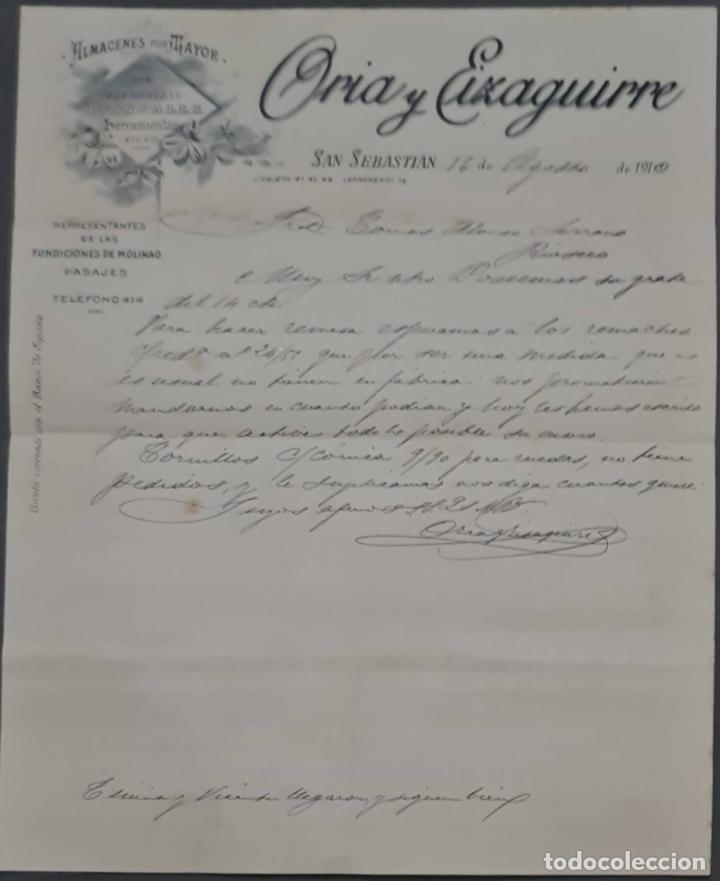 ALMACENES POR MAYOR
DE
FERRETERIA
Herramientas
ETC. ETC.
Oria y Eizaguirre
SAN SEBASTIÁN 16 de Agosto de 1910
LARRAMENDI, 13
REPRESENTANTES
DE LAS
FUNDICIONES DE MOLINAO
PASAJES
TELÉFONO 414
Cuenta corriente con el Banco de España
Sr. D. Tomás Alonso Serrano
Rioseco
Muy Sr. ntro. Poseemos su grata
del 14 cte.
Para hacer remesa esperamos a los remaches
nº 24/55 que por ser una medida que no
es usual no tienen en fábrica; nos prometieron
mandarnos en cuanto podian y hoy les hemos escrito
para que activen todo lo posible su envio.
Tornillos 9/90 para ruedas, no tiene
pedidos, y le suplicamos nos diga cuantos quiere
Suyos afmos
Oria y Eizaguirre
y Vicente llegaron y siguen bien
todocoleccion
todocoleccion.net